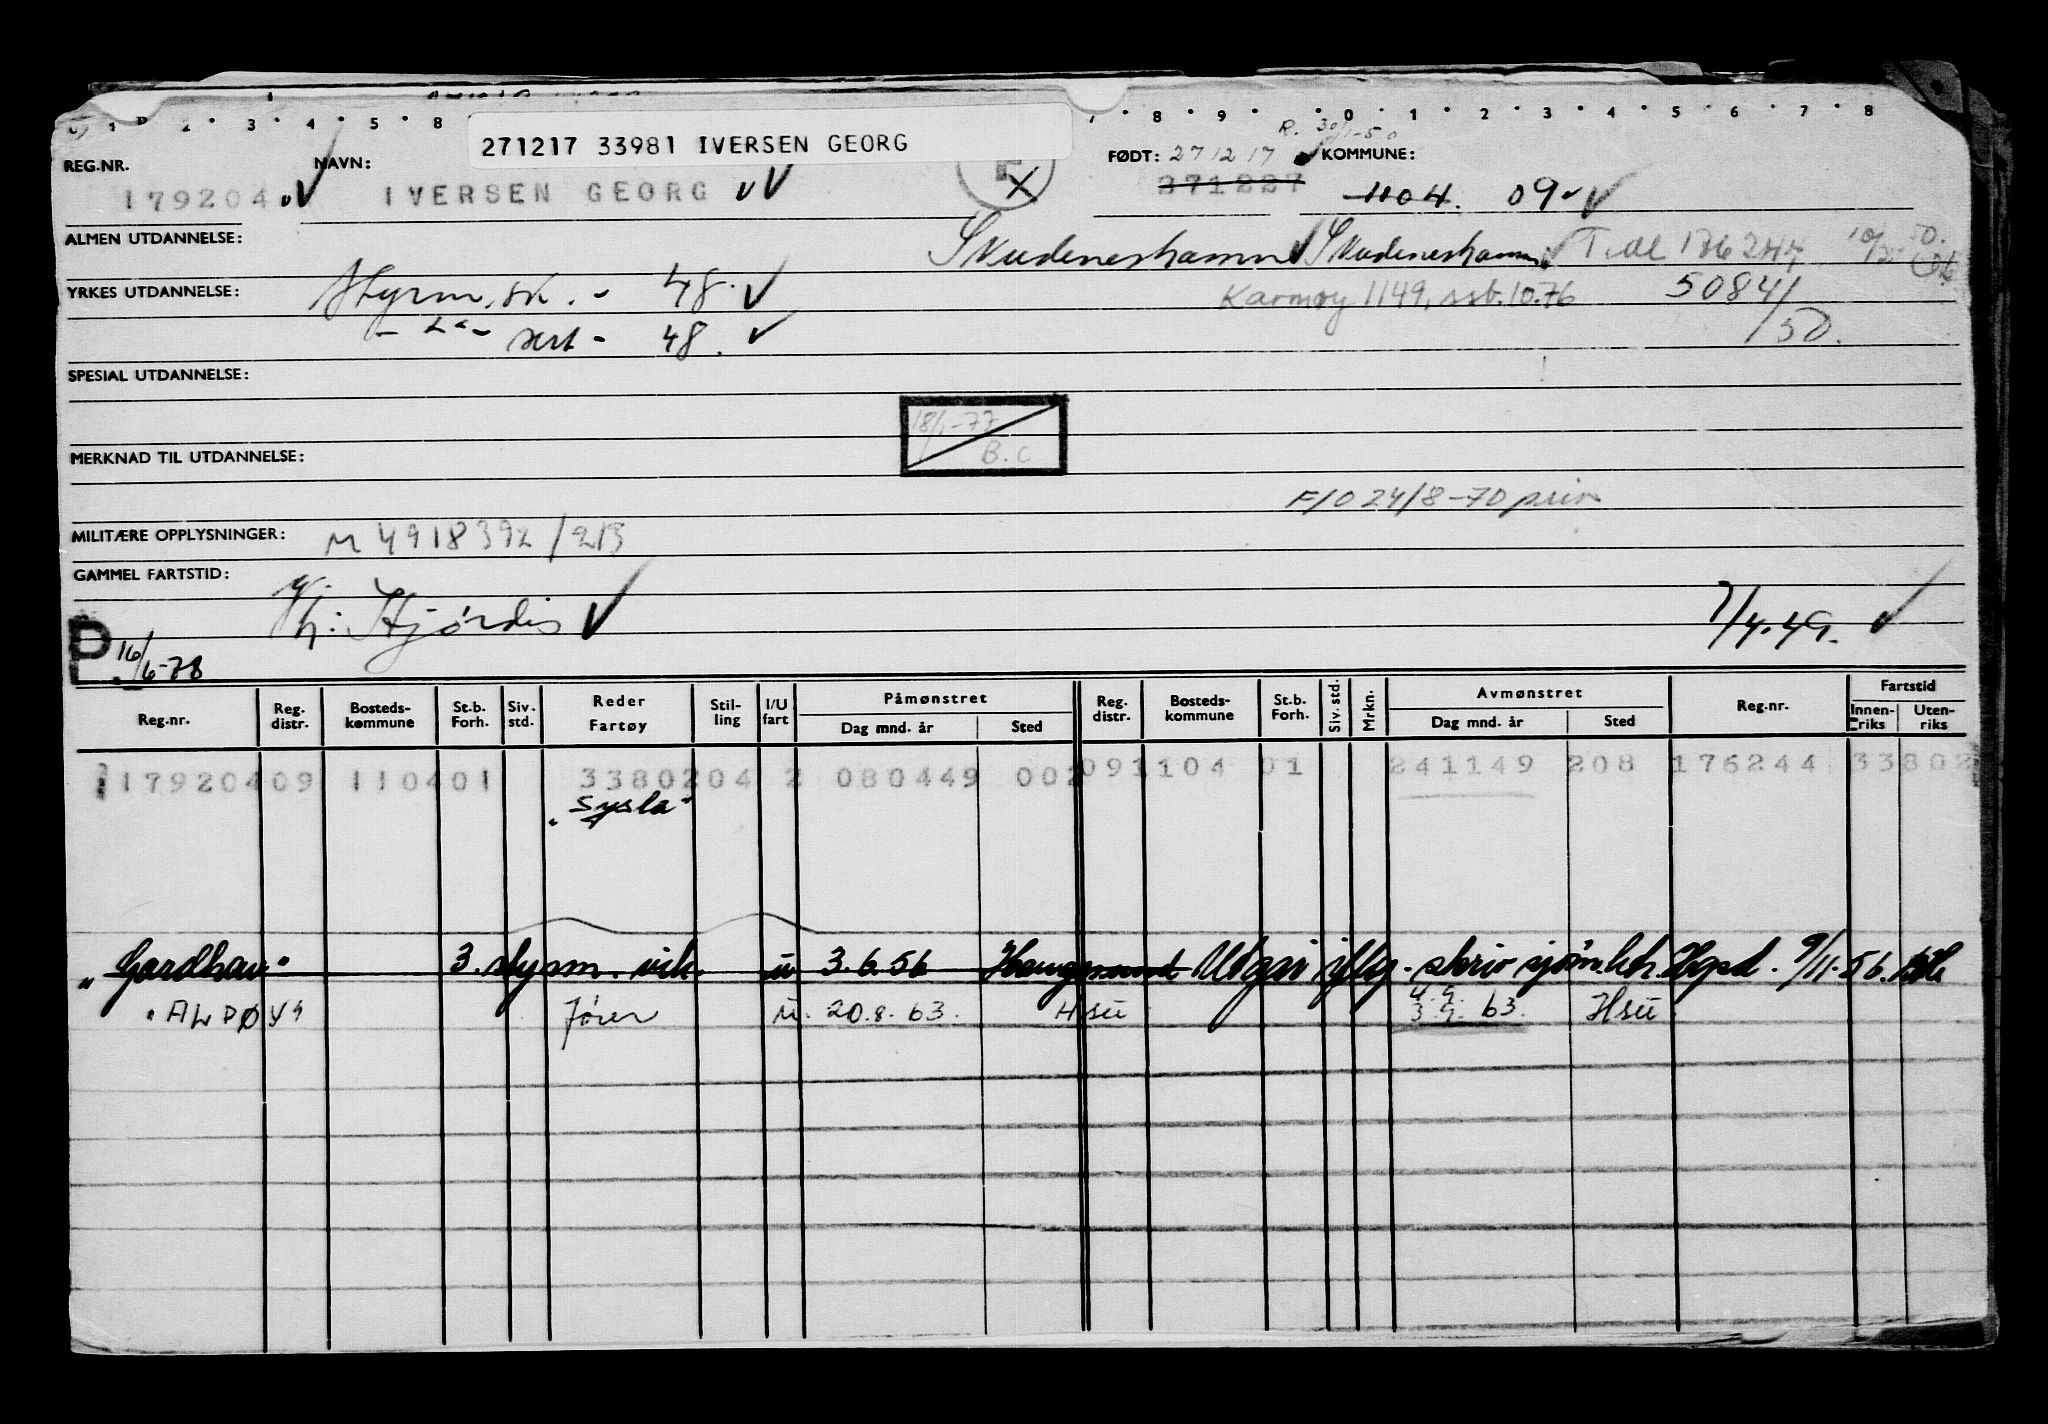 271217 33981 IVERSEN GEORG
R. 30/1-50
REG.NR. NAVN: FØDT: 271217 KOMMUNE:
179204 IVERSEN GEORG 271227 1104. 09
ALMEN UTDANNELSE: Skudeneshamn Skudeneshamn Tidl 176244 10/2-50.
YRKES UTDANNELSE: Styrm.sk. - 48. Karmøy 1149, ssb. 10.76 5084/50.
- " - sert - 48.
SPESIAL UTDANNELSE:
18/1-77 B.C
MERKNAD TIL UTDANNELSE:
F/O 24/8-70 prim
MILITÆRE OPPLYSNINGER: M 4918392/213
GAMMEL FARTSTID: Hjørdis 7/4.49.
P. 16/6-78
Reg.nr. Reg. distr. Bosteds-kommune St.b. Forh. Siv. std. Reder Fartøy Stil-ling I/U fart Påmønstret Dag mnd. år Sted Reg. distr. Bosteds-kommune St.b. Forh. Siv. std. Mrkn. Avmønstret Dag mnd. år Sted Reg.nr. Fartstid Innen-riks Uten-riks
179204 09 1104 01 33802 04 2 080449 002 09 1104 01 241149 208 176244 33802
"Sysla"
"Gardhav" 3. styrm. vik. u 3.6.56 Haugesund Utgår iflg. skriv sjøm.ktr. Hgsd. 9/11-56.
"ALDØY" Fører u. 20.8.63. Hsu 4.9. 3.9.63. Hsu